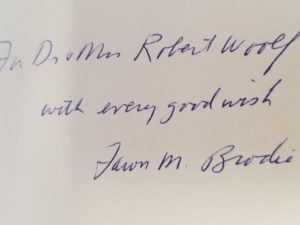 For Dr & Mrs Robert Woolf
with every good wish
Fawn M. Brodie